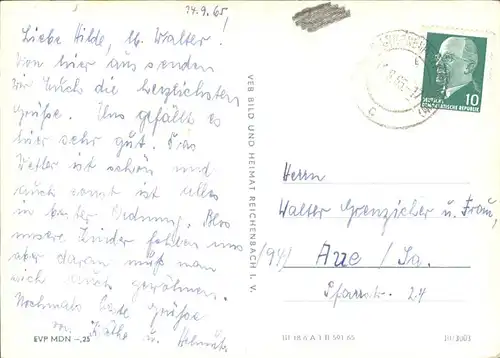 24.9.65!
Liebe Hilde, lb. Walter!
Von hier aus senden
wir Euch die herzlichsten
Grüße. Uns gefällt es
hier sehr gut. Das
Wetter ist schön und
auch sonst ist alles
in bester Ordnung. Blos
unsere Kinder fehlen uns
aber daran muß man
sich auch gewöhnen.
Nochmals beste Grüße
von Käthe u. Helmut
EVP MDN –,25
VEB BILD UND HEIMAT REICHENBACH I. V.
10
DEUTSCHE
DEMOKRATISCHE REPUBLIK
Herrn
Walter Grenzicher u. Frau,
(94) Aue / Sa.
Pfarrstr. 24
III 18 6 A 1 B 591 65